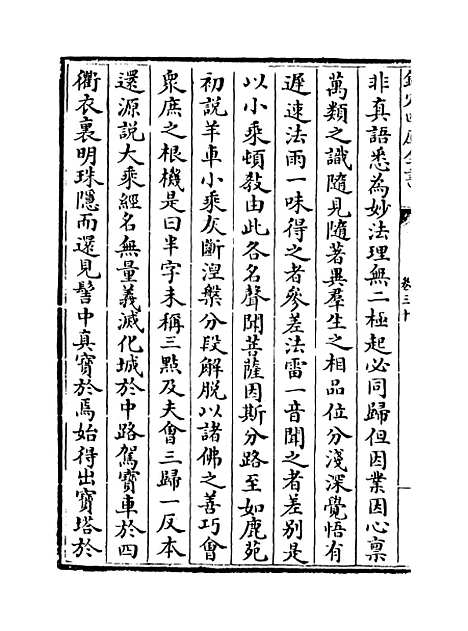 非真語悉為妙法理無二極起必同歸但因業因心稟
萬類之識隨見隨著異羣生之相品位分淺深覺悟有
遲速法雨一味得之者參差法雷一音聞之者差别是
以小乘頓教由此各名聲聞菩薩因斯分路至如鹿苑
初説羊車小乘灰斷涅槃分段解脱以諸佛之善巧會
衆庶之根機是曰半字未稱三點及夫會三歸一反本
還源説大乘經名無量義滅化城於中路駕寳車於四
衢衣裏明珠隱而還見髻中真寳於焉始得出寳塔於
卷三十